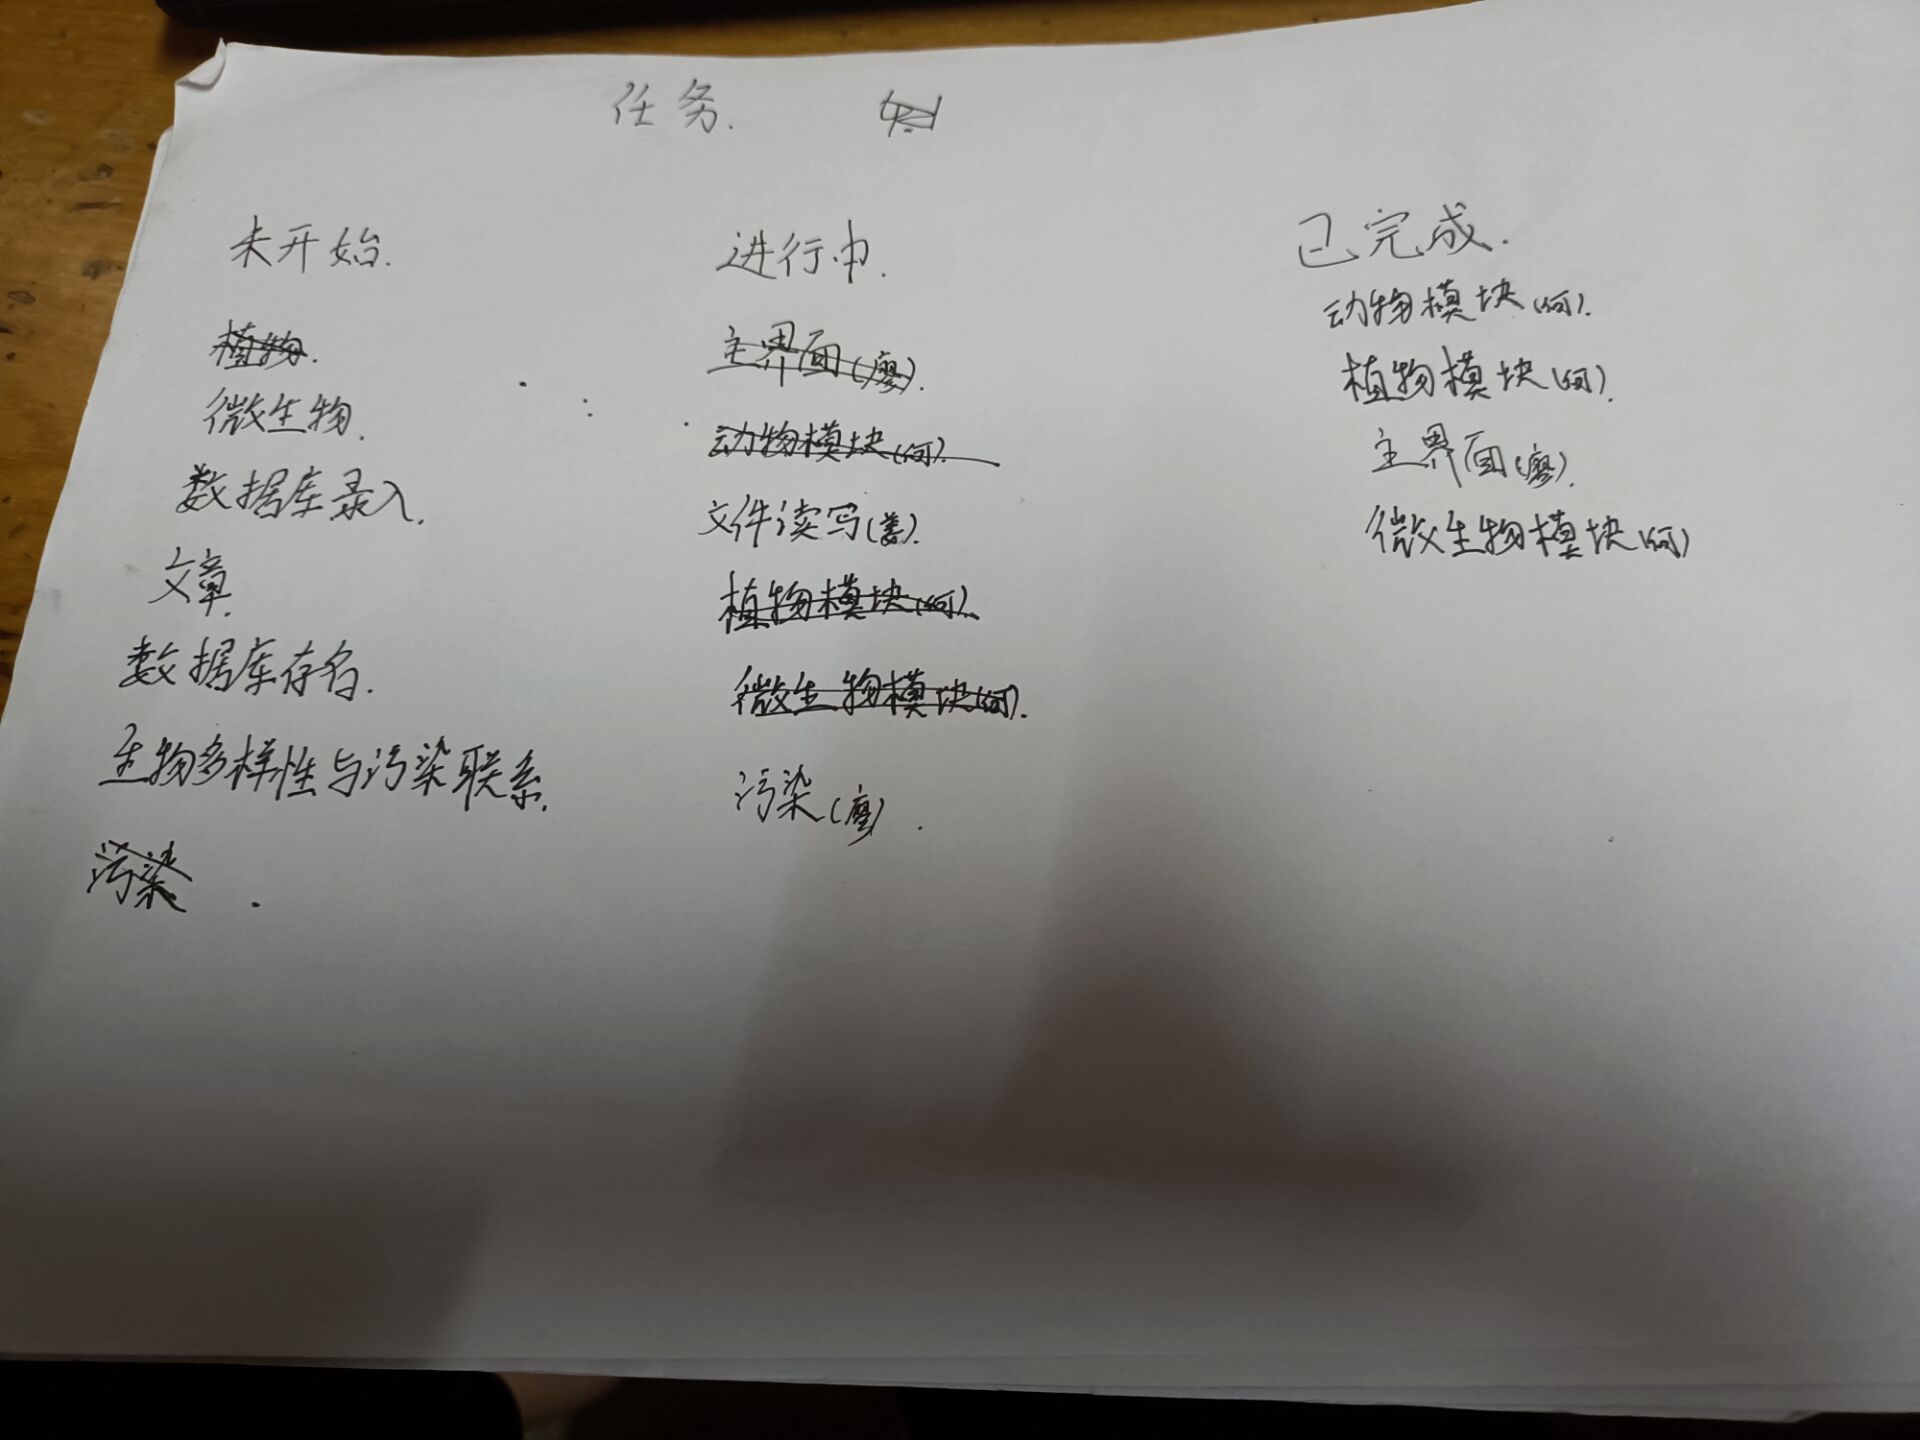 任务.
未开始.
植物.
微生物.
数据库录入.
文章.
数据库存名.
生物多样性与污染联系.
污染.
进行中.
主界面(廖).
动物模块(何).
文件读写(姜).
植物模块(何).
微生物模块(何).
污染(廖).
已完成.
动物模块(何).
植物模块(何).
主界面(廖).
微生物模块(何)